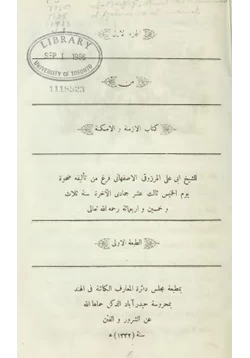 LIBRARY
SEP 1 1966
UNIVERSITY OF TORONTO
1118523
الجزء الاول
من
كتاب الازمنة و الامكنة
للشيخ ابى على المرزوقى الاصفهانى فرغ من تأليفه ضحوة
يوم الخميس ثالث عشر جمادى الآخرة سنة ثلاث
و خمسين و اربعمائة رحمه الله تعالى
الطبعة الاولى
بمطبعة مجلس دائرة المعارف الكائنة فى الهند
بمحروسة حيدرآباد الدكن حماها الله
عن الشرور و الفتن
سنة (١٣٣٢) ه